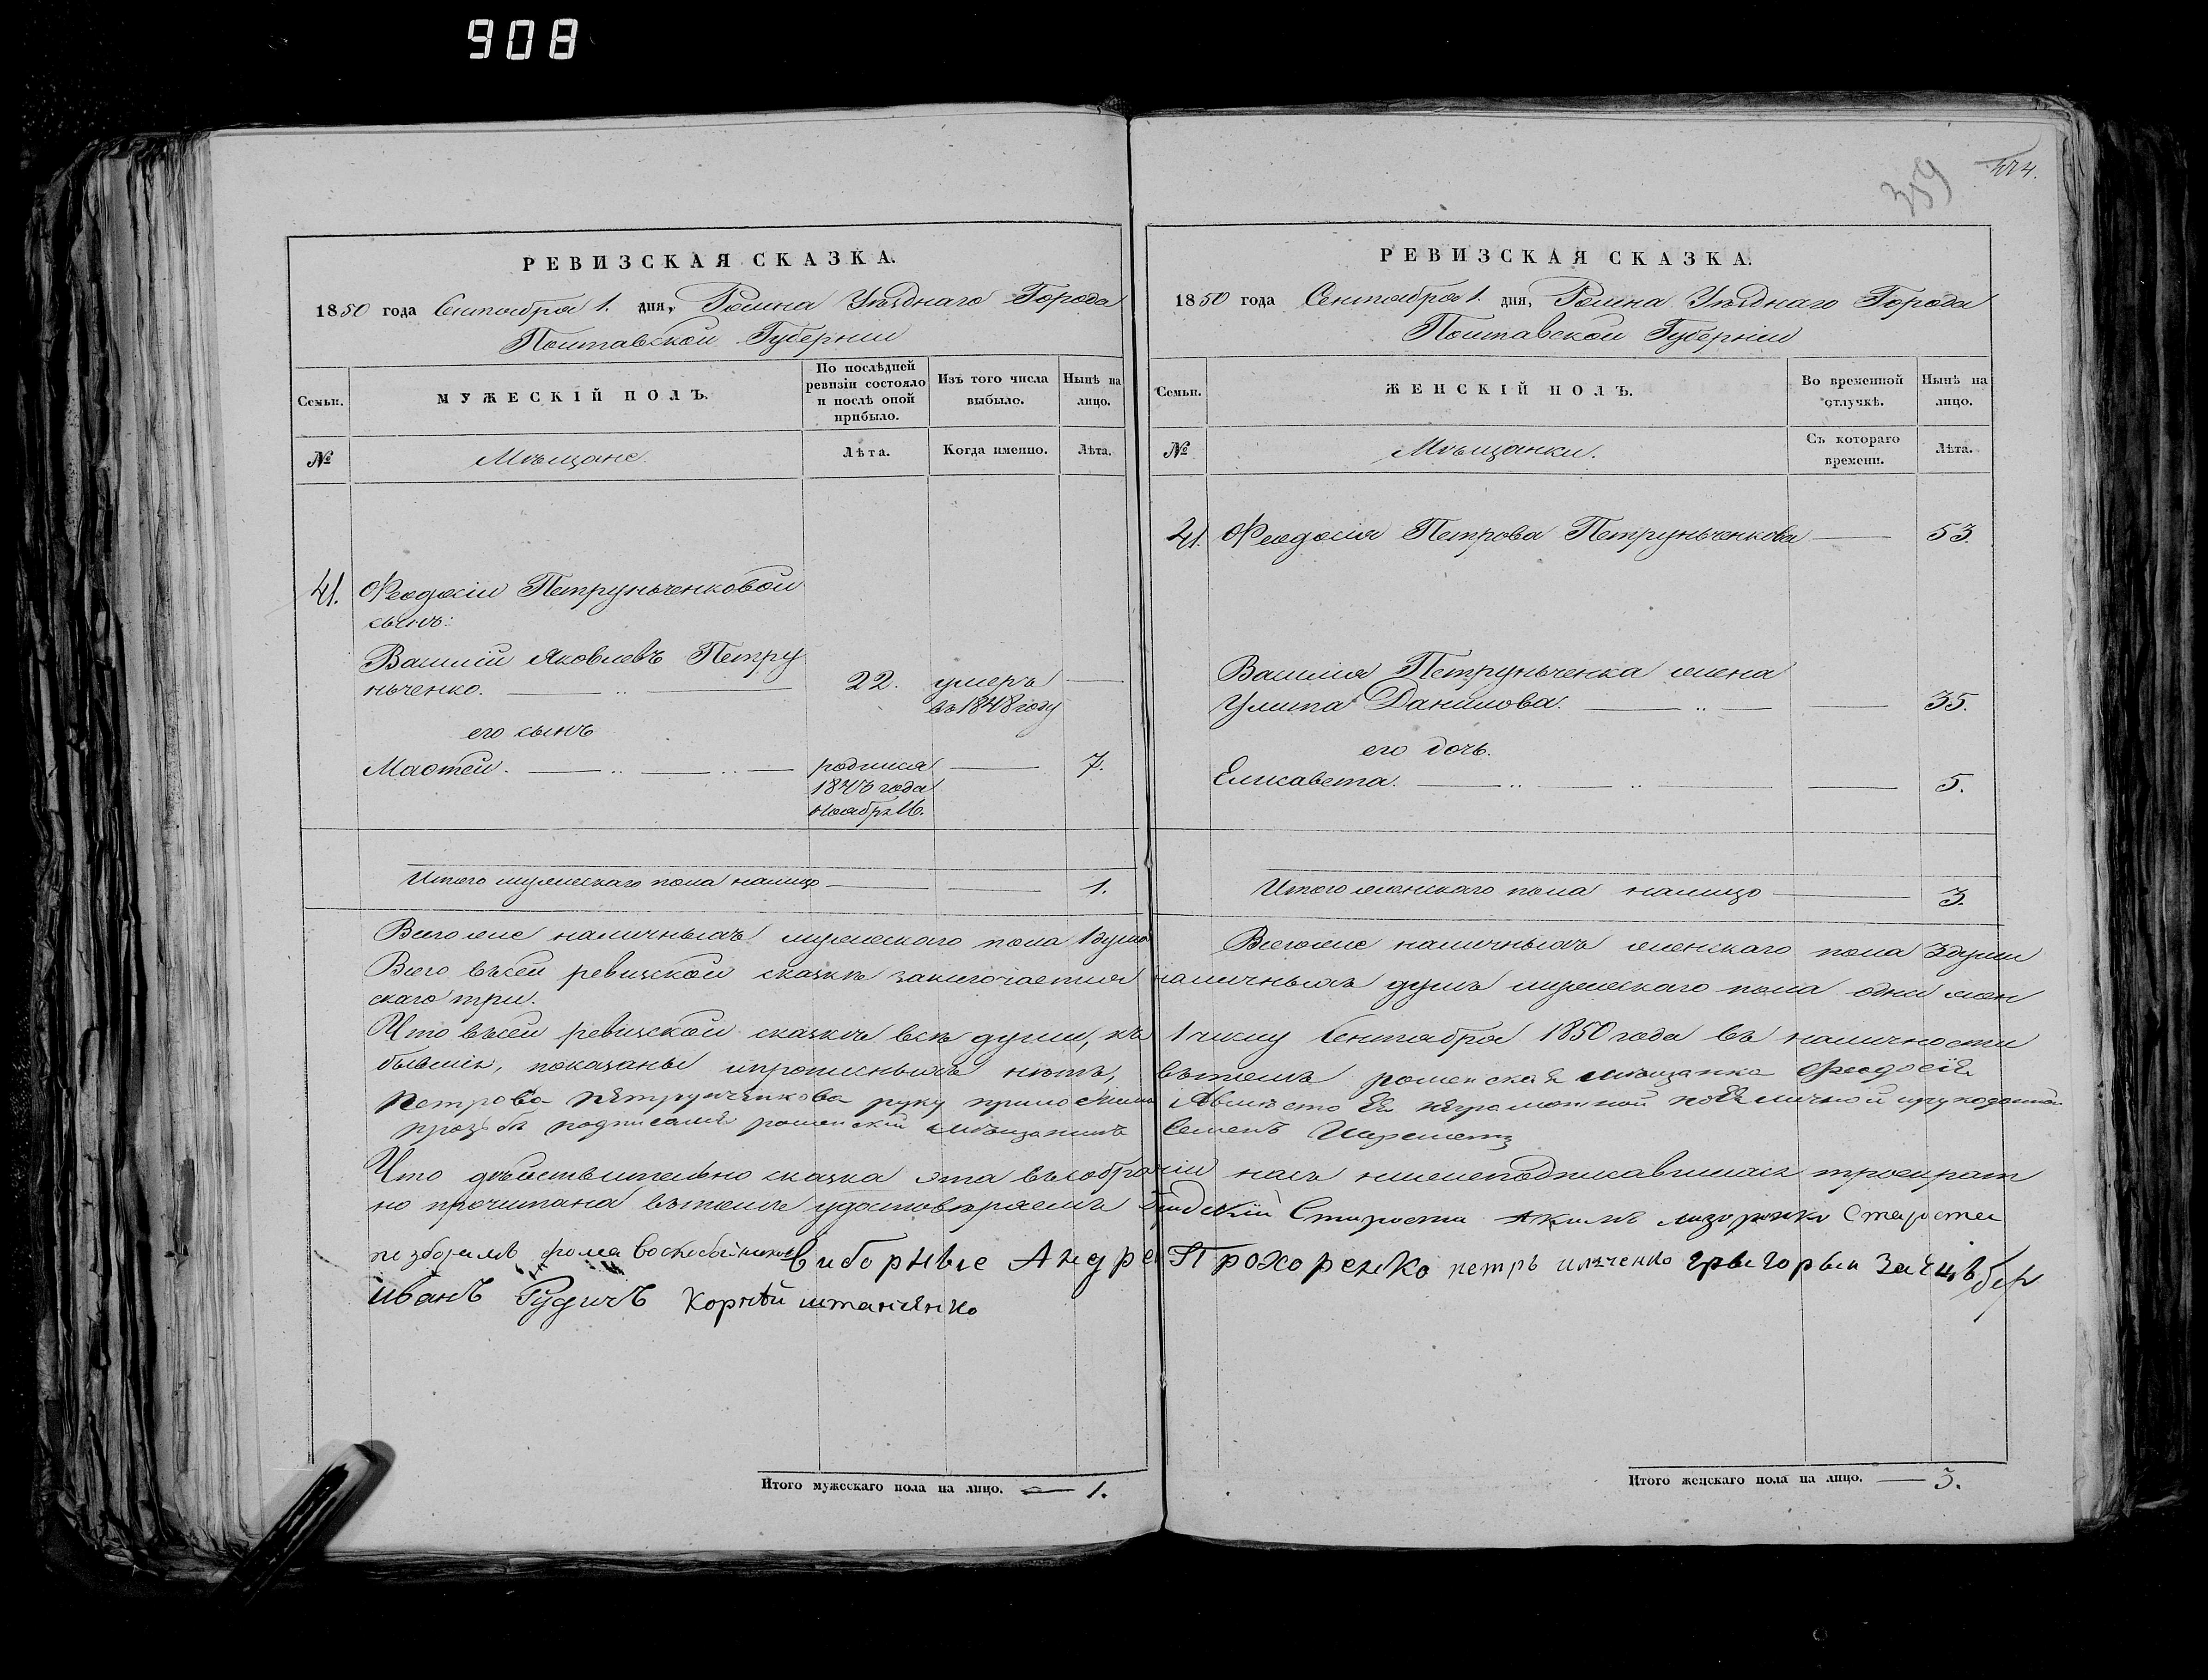 908
359
РЕВИЗСКАЯ СКАЗКА.
1850 года Сентября 1. дня, Ромна Уѣзднаго Города
Полтавской Губерніи
Семьи.
МУЖЕСКІЙ ПОЛЪ.
По послѣдней ревизіи состояло и послѣ оной прибыло.
Изъ того числа выбыло.
Нынѣ на лицо.
№
Мѣщане.
Лѣта.
Когда именно.
Лѣта.
41. Феодосіи Петруньченковой
сынъ:
Василій Яковлевъ Петру
ньченко. 22. умеръ
въ 1848 году
его сынъ
Матвей. родился 7.
года
Ноабр. 16.
Итого мужескаго пола налицо 1.
Всего же наличныхъ мужескаго пола 1 душа
Итого мужескаго пола на лицо. 1.
РЕВИЗСКАЯ СКАЗКА.
1850 года Сентября 1. дня, Ромна Уѣзднаго Города
Полтавской Губерніи
Семьи.
ЖЕНСКІЙ ПОЛЪ.
Во временной отлучкѣ.
Нынѣ на лицо.
№
Мѣщанки.
Съ котораго времени.
Лѣта.
41. Феодосія Петрова Петруньченкова 53.
Василія Петруньченка жена
Улита Данилова. 35.
его дочь.
Елисавета. 5.
Итого женскаго пола налицо 3.
Всего же наличныхъ женскаго пола 3 души
Всего въ сей ревизской сказкѣ заключается наличныхъ душъ мужескаго пола одна жен
скаго три.
Что въ сей ревизской сказкѣ всѣ души, къ 1 числу Сентября 1850 года въ наличности
бывшія, показаны и прописныхъ нѣтъ, въ томъ роменская мѣщанка Феодосія
Петрова Петрунченкова руку приложила Авмѣсто Ея неграмотной поЕя личной
прозьбѣ подписался роменский мѣщанинъ Семенъ Шереметъ
Что дѣйствительно сказка эта въ собраніи насъ нижеподписавшихся троекрат
но прочитана въ томъ удостовѣряемъ Градскій Староста Акимъ Староста
фома виборные Андрей Прохоренко петръ илченко грыгорый Заецъ
иванъ Рудичъ Корнѣй штанченко
Итого женскаго пола на лицо. 3.